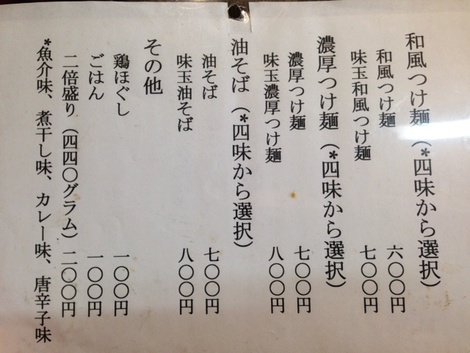 和風つけ麺(*四味から選択)
和風つけ麺 六〇〇円
味玉和風つけ麺 七〇〇円
濃厚つけ麺(*四味から選択)
濃厚つけ麺 七〇〇円
味玉濃厚つけ麺 八〇〇円
油そば(*四味から選択)
油そば 七〇〇円
味玉油そば 八〇〇円
その他
鶏ほぐし 一〇〇円
ごはん 一〇〇円
二倍盛り(四四〇グラム)二〇〇円
*魚介味、煮干し味、カレー味、唐辛子味